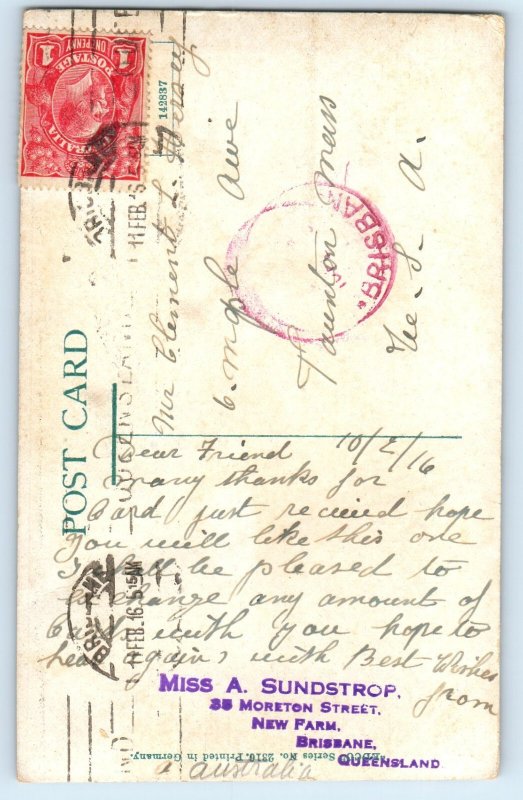 POST CARD
1 POSTAGE 1
ONE PENNY
142837
BRISBANE
11 FEB. 16
QUEENSLAND
BRISBANE
11 FEB. 16. 5 15 PM
BRISBANE
Mr Clement L.
6. Maple Ave
Taunton Mass
U. S. A.
10/2/16
Dear Friend
many thanks for
Card just received hope
you will like this one
I shall be pleased to
exchange any amount of
Cards with you hope to
hear again, with Best Wishes
from
MISS A. SUNDSTROP,
35 MORETON STREET,
NEW FARM,
BRISBANE,
QUEENSLAND
Australia
Series No. 2310. Printed in Germany.